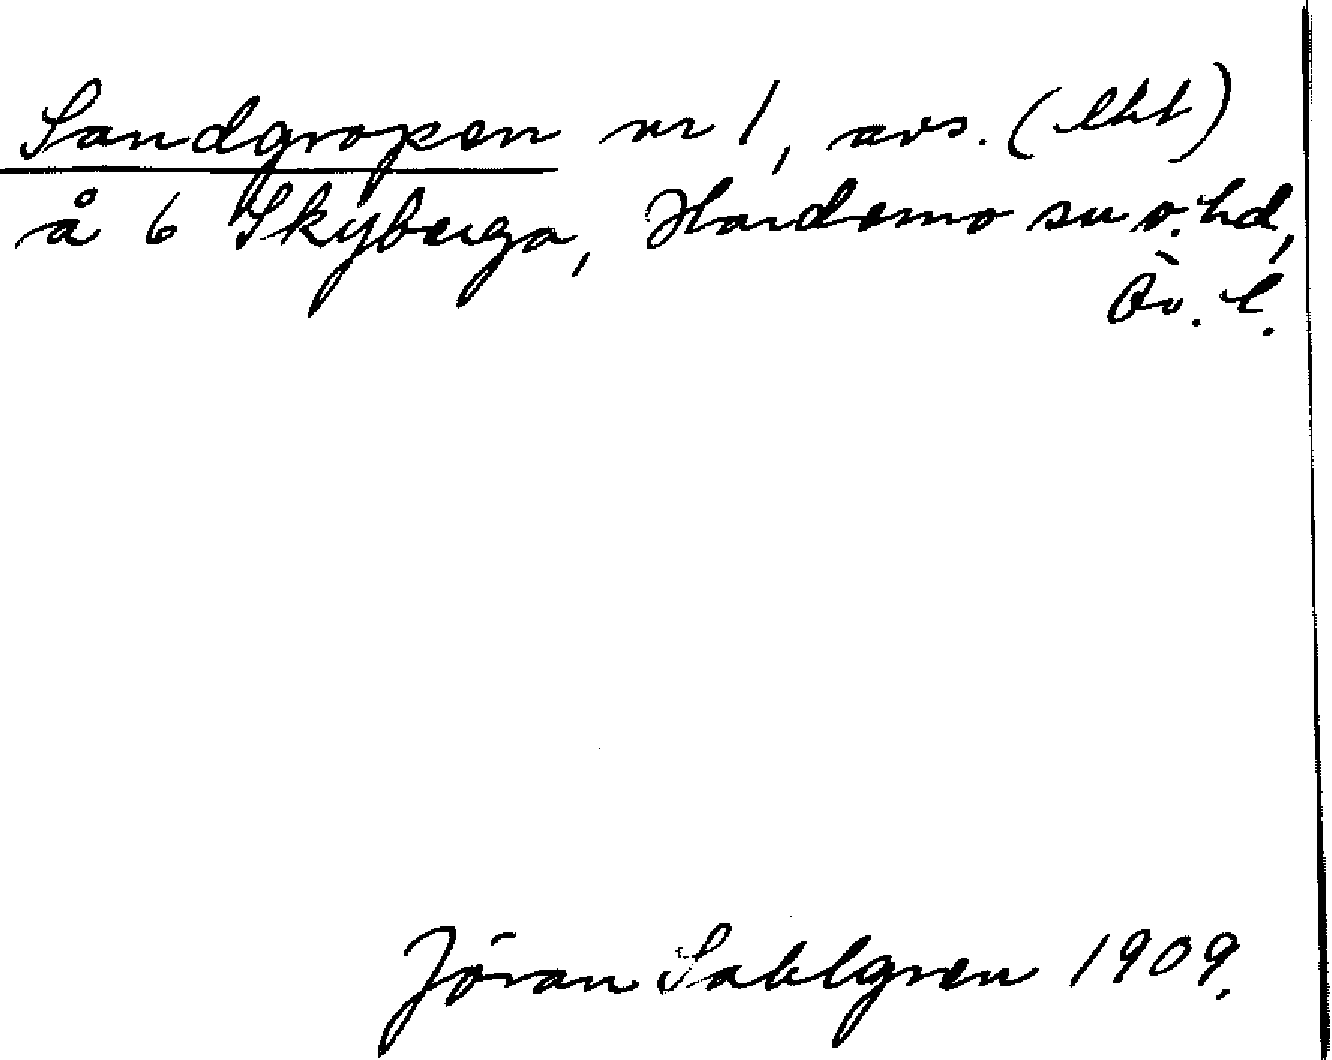 Sandgropen nr 1, avs. (lht)
å 6 Skyberga, Hardemo sn o. hd,
Ör. l.
Jöran Sahlgren 1909.